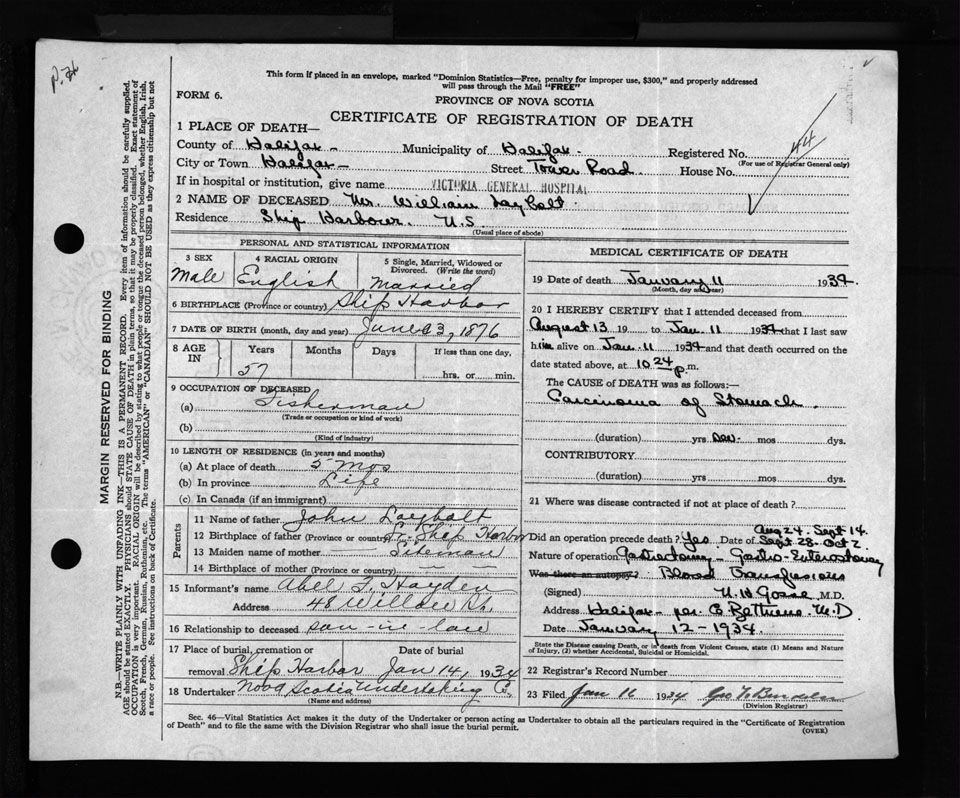 P. 76
This form if placed in an envelope, marked "Dominion Statistics—Free, penalty for improper use, $300," and properly addressed
will pass through the Mail "FREE"
FORM 6.
PROVINCE OF NOVA SCOTIA
CERTIFICATE OF REGISTRATION OF DEATH
1 PLACE OF DEATH—
County of Halifax - Municipality of Halifax - Registered No. 44
(For use of Registrar General only)
City or Town Halifax - Street Tower Road. House No.
If in hospital or institution, give name VICTORIA GENERAL HOSPITAL
2 NAME OF DECEASED Mr. William Laybolt.
Residence Ship Harbour. N.S.
(Usual place of abode)
PERSONAL AND STATISTICAL INFORMATION
3 SEX Male
4 RACIAL ORIGIN English
5 Single, Married, Widowed or Divorced. (Write the word) Married
6 BIRTHPLACE (Province or country) Ship Harbor
7 DATE OF BIRTH (month, day and year) June 23, 1876
8 AGE IN Years Months Days If less than one day,
57 hrs. or min.
9 OCCUPATION OF DECEASED
(a) Fisherman
(Trade or occupation or kind of work)
(b)
(Kind of industry)
10 LENGTH OF RESIDENCE (in years and months)
(a) At place of death 5 mos
(b) In province Life
(c) In Canada (if an immigrant)
Parents
11 Name of father John Laybolt
12 Birthplace of father (Province or country) Ship Harbor
13 Maiden name of mother — Siteman
14 Birthplace of mother (Province or country) —
15 Informant's name Abel F. Hayden
Address 48 Willow St.
16 Relationship to deceased son-in-law
17 Place of burial, cremation or removal Ship Harbor Date of burial Jan 14, 1934
18 Undertaker Nova Scotia Undertaking Co.
(Name and address)
MEDICAL CERTIFICATE OF DEATH
19 Date of death January 11 1934.
(Month, day and year)
20 I HEREBY CERTIFY that I attended deceased from
August 13 19 to Jan. 11 1934 that I last saw
him alive on Jan. 11 1934 and that death occurred on the
date stated above, at 10 24 p.m.
The CAUSE OF DEATH was as follows:—
Carcinoma of Stomach.
(duration) yrs mos dys.
CONTRIBUTORY
(duration) yrs mos dys.
21 Where was disease contracted if not at place of death?
Aug 24. Sept 14.
Did an operation precede death? Yes. Date of Sept 28. Oct 2.
Nature of operation Gastrectomy - Gastro-Enterostomy
Was there an autopsy? Blood Transfusions
(Signed) M.D.
Address Halifax - per M.D
Date January 12 - 1934.
State the Disease causing Death, or in death from Violent Causes, state (1) Means and Nature
of Injury, (2) whether Accidental, Suicidal or Homicidal.
22 Registrar's Record Number
23 Filed Jan 16 1934
(Division Registrar)
Sec. 46—Vital Statistics Act makes it the duty of the Undertaker or person acting as Undertaker to obtain all the particulars required in the "Certificate of Registration
of Death" and to file the same with the Division Registrar who shall issue the burial permit.
(OVER)
MARGIN RESERVED FOR BINDING
N.B.—WRITE PLAINLY WITH UNFADING INK—THIS IS A PERMANENT RECORD. Every item of information should be carefully supplied.
AGE should be stated EXACTLY. PHYSICIANS should STATE CAUSE OF DEATH in plain terms, so that it may be properly classified. Exact statement of
OCCUPATION is very important. RACIAL ORIGIN will be described by stating to what people or tongue the deceased person belonged, whether English, Irish,
Scotch, French, German, Russian, Ruthenian, etc. The terms "AMERICAN" or "CANADIAN" SHOULD NOT BE USED as they express citizenship but not
a race or people. See instructions on back of Certificate.